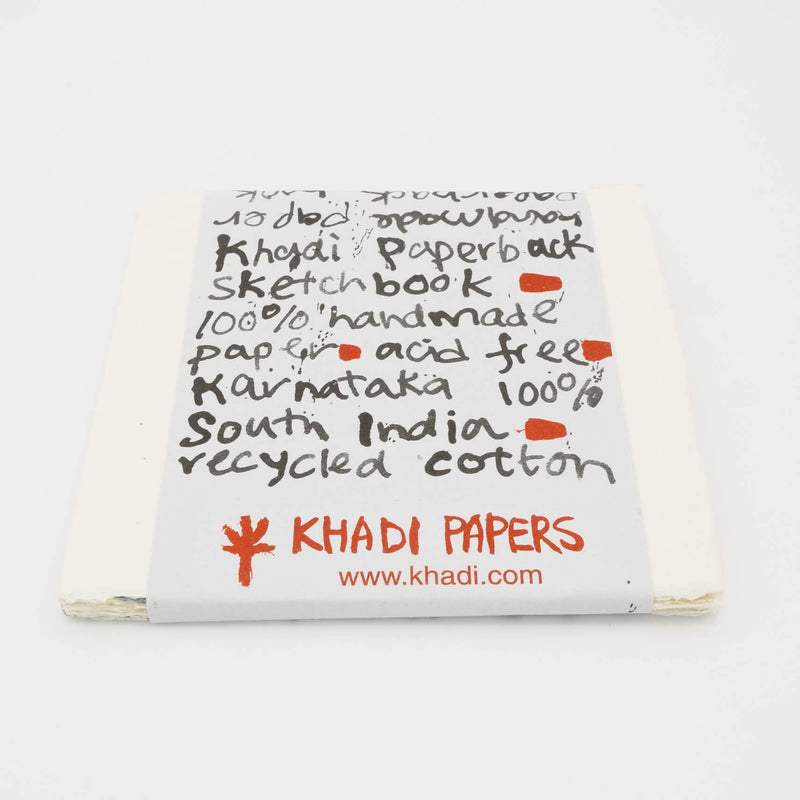 paperback
handmade paper
Khadi Paperback
sketchbook
100% handmade
paper acid free
Karnataka 100%
South India
recycled cotton
KHADI PAPERS
www.khadi.com